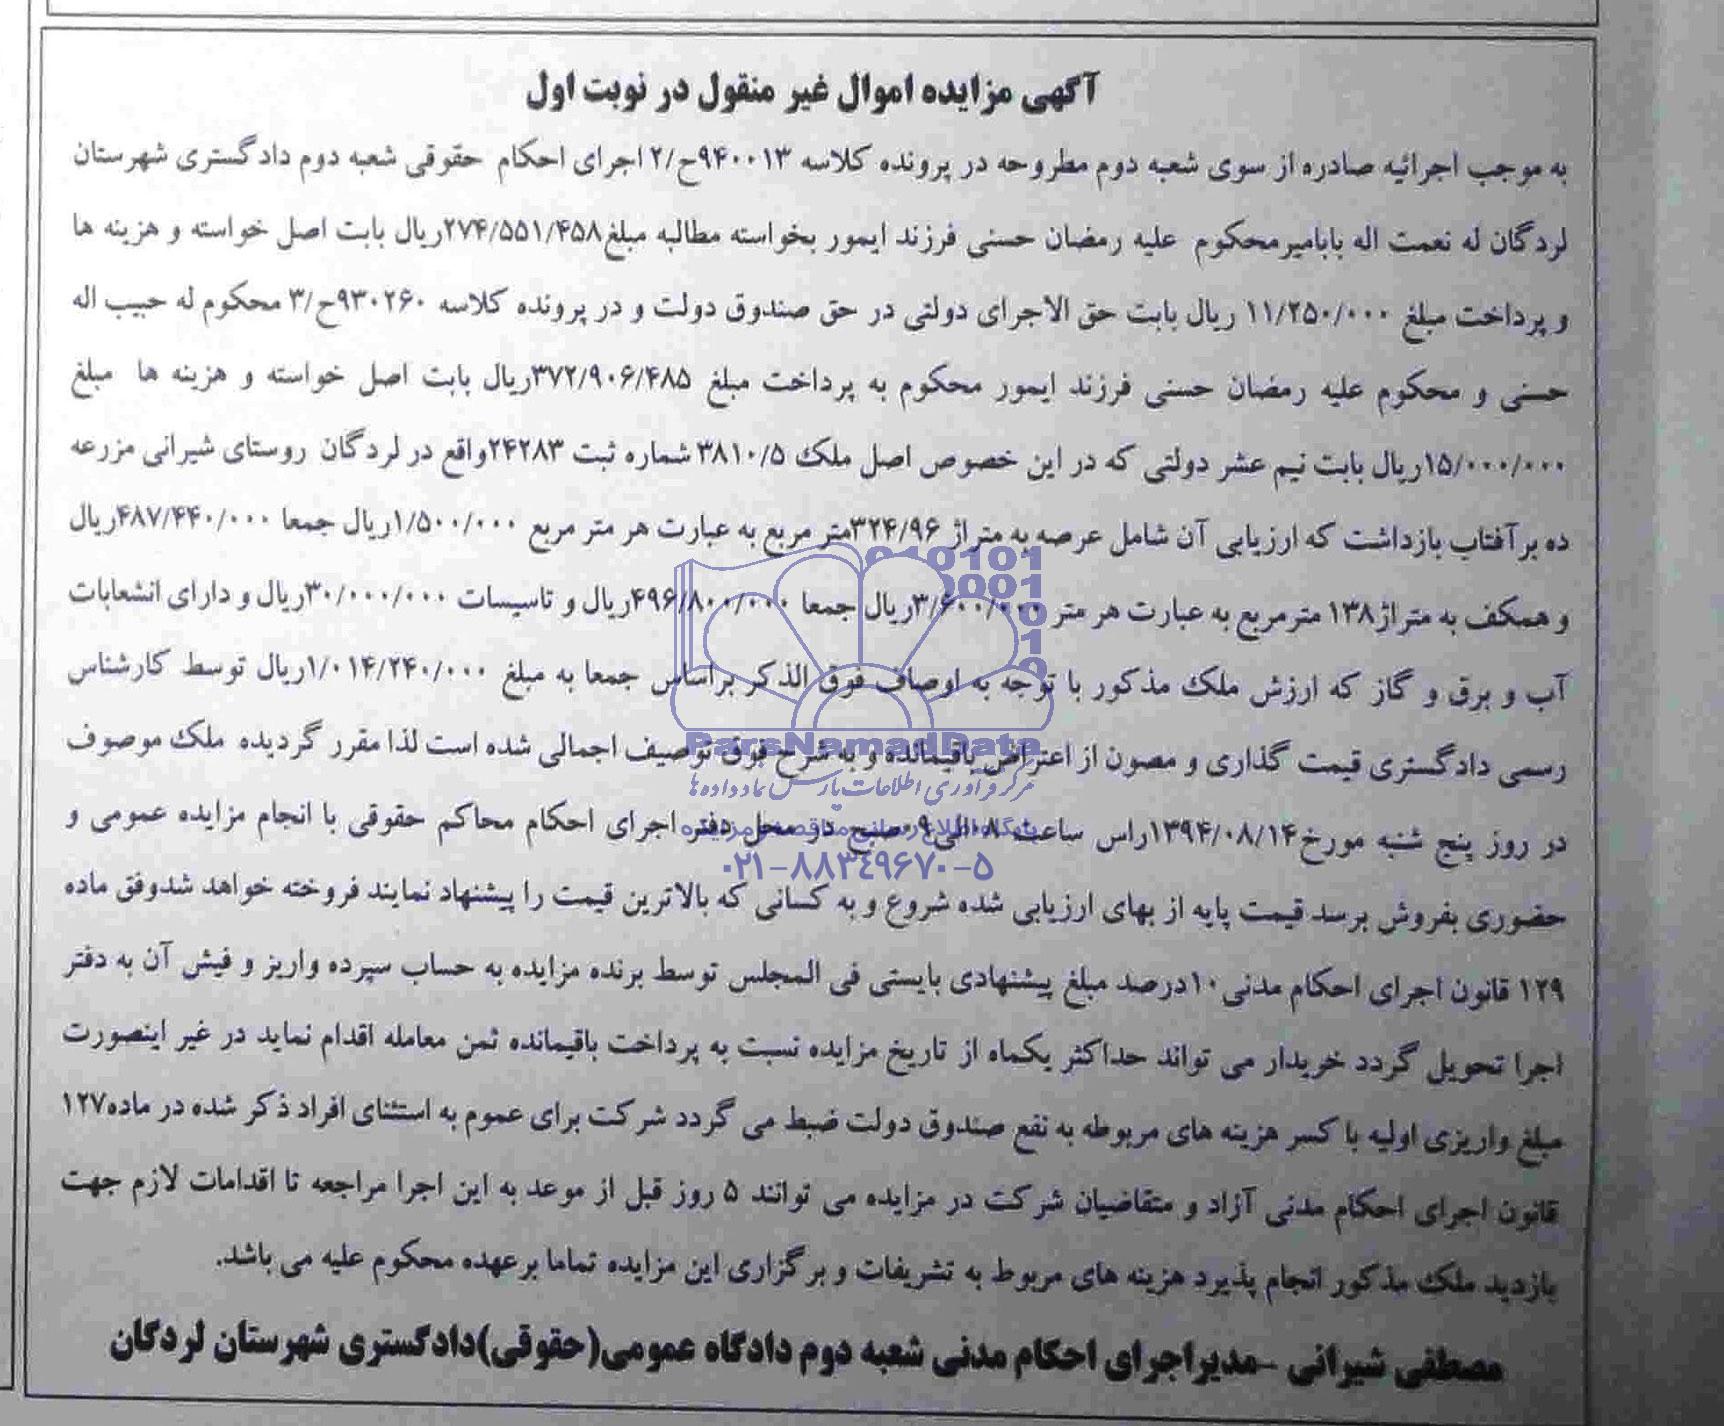 آگهی مزایده اموال غیر منقول در نوبت اول
به موجب اجرائیه صادره از سوی شعبه دوم مطروحه در پرونده کلاسه ۹۴۰۰۱۳ح/۲ اجرای احکام حقوقی شعبه دوم دادگستری شهرستان
لردگان له نعمت اله بابامیرمحکوم علیه رمضان حسنی فرزند ایمور بخواسته مطالبه مبلغ۲۷۴/۵۵۱/۴۵۸ریال بابت اصل خواسته و هزینه ها
و پرداخت مبلغ ۱۱/۲۵۰/۰۰۰ ریال بابت حق الاجرای دولتی در حق صندوق دولت و در پرونده کلاسه ۹۳۰۲۶۰ح/۳ محکوم له حبیب اله
حسنی و محکوم علیه رمضان حسنی فرزند ایمور محکوم به پرداخت مبلغ ۳۷۲/۹۰۶/۴۸۵ریال بابت اصل خواسته و هزینه ها مبلغ
۱۵/۰۰۰/۰۰۰ریال بابت نیم عشر دولتی که در این خصوص اصل ملک ۳۸۱۰/۵ شماره ثبت ۲۴۲۸۳واقع در لردگان روستای شیرانی مزرعه
ده برآفتاب بازداشت که ارزیابی آن شامل عرصه به متراژ ۳۲۴/۹۶متر مربع به عبارت هر متر مربع ۱/۵۰۰/۰۰۰ریال جمعا ۴۸۷/۴۴۰/۰۰۰ریال
و همکف به متراژ۱۳۸ مترمربع به عبارت هر متر ۳/۶۰۰/۰۰۰ریال جمعا ۴۹۶/۸۰۰/۰۰۰ریال و تاسیسات ۳۰/۰۰۰/۰۰۰ریال و دارای انشعابات
آب و برق و گاز که ارزش ملک مذکور با توجه به اوصاف فوق الذکر براساس جمعا به مبلغ ۱/۰۱۴/۲۴۰/۰۰۰ریال توسط کارشناس
رسمی دادگستری قیمت گذاری و مصون از اعتراض باقیمانده و به شرح فوق توصیف اجمالی شده است لذا مقرر گردیده ملک موصوف
در روز پنج شنبه مورخ۱۳۹۴/۰۸/۱۴راس ساعت ۰۸الی۰۹صبح در محل دفتر اجرای احکام محاکم حقوقی با انجام مزایده عمومی و
حضوری بفروش برسد قیمت پایه از بهای ارزیابی شده شروع و به کسانی که بالاترین قیمت را پیشنهاد نمایند فروخته خواهد شدوفق ماده
۱۲۹ قانون اجرای احکام مدنی۱۰درصد مبلغ پیشنهادی بایستی فی المجلس توسط برنده مزایده به حساب سپرده واریز و فیش آن به دفتر
اجرا تحویل گردد خریدار می تواند حداکثر یکماه از تاریخ مزایده نسبت به پرداخت باقیمانده ثمن معامله اقدام نماید در غیر اینصورت
مبلغ واریزی اولیه با کسر هزینه های مربوطه به نفع صندوق دولت ضبط می گردد شرکت برای عموم به استثنای افراد ذکر شده در ماده۱۲۷
قانون اجرای احکام مدنی آزاد و متقاضیان شرکت در مزایده می توانند ۵ روز قبل از موعد به این اجرا مراجعه تا اقدامات لازم جهت
بازدید ملک مذکور انجام پذیرد هزینه های مربوط به تشریفات و برگزاری این مزایده تماما برعهده محکوم علیه می باشد.
مصطفی شیرانی -مدیراجرای احکام مدنی شعبه دوم دادگاه عمومی(حقوقی)دادگستری شهرستان لردگان
ParsNamadData
مرکز فرآوری اطلاعات پارس نماد داده ها
۰۲۱-۸۸۳۴۹۶۷۰-۵